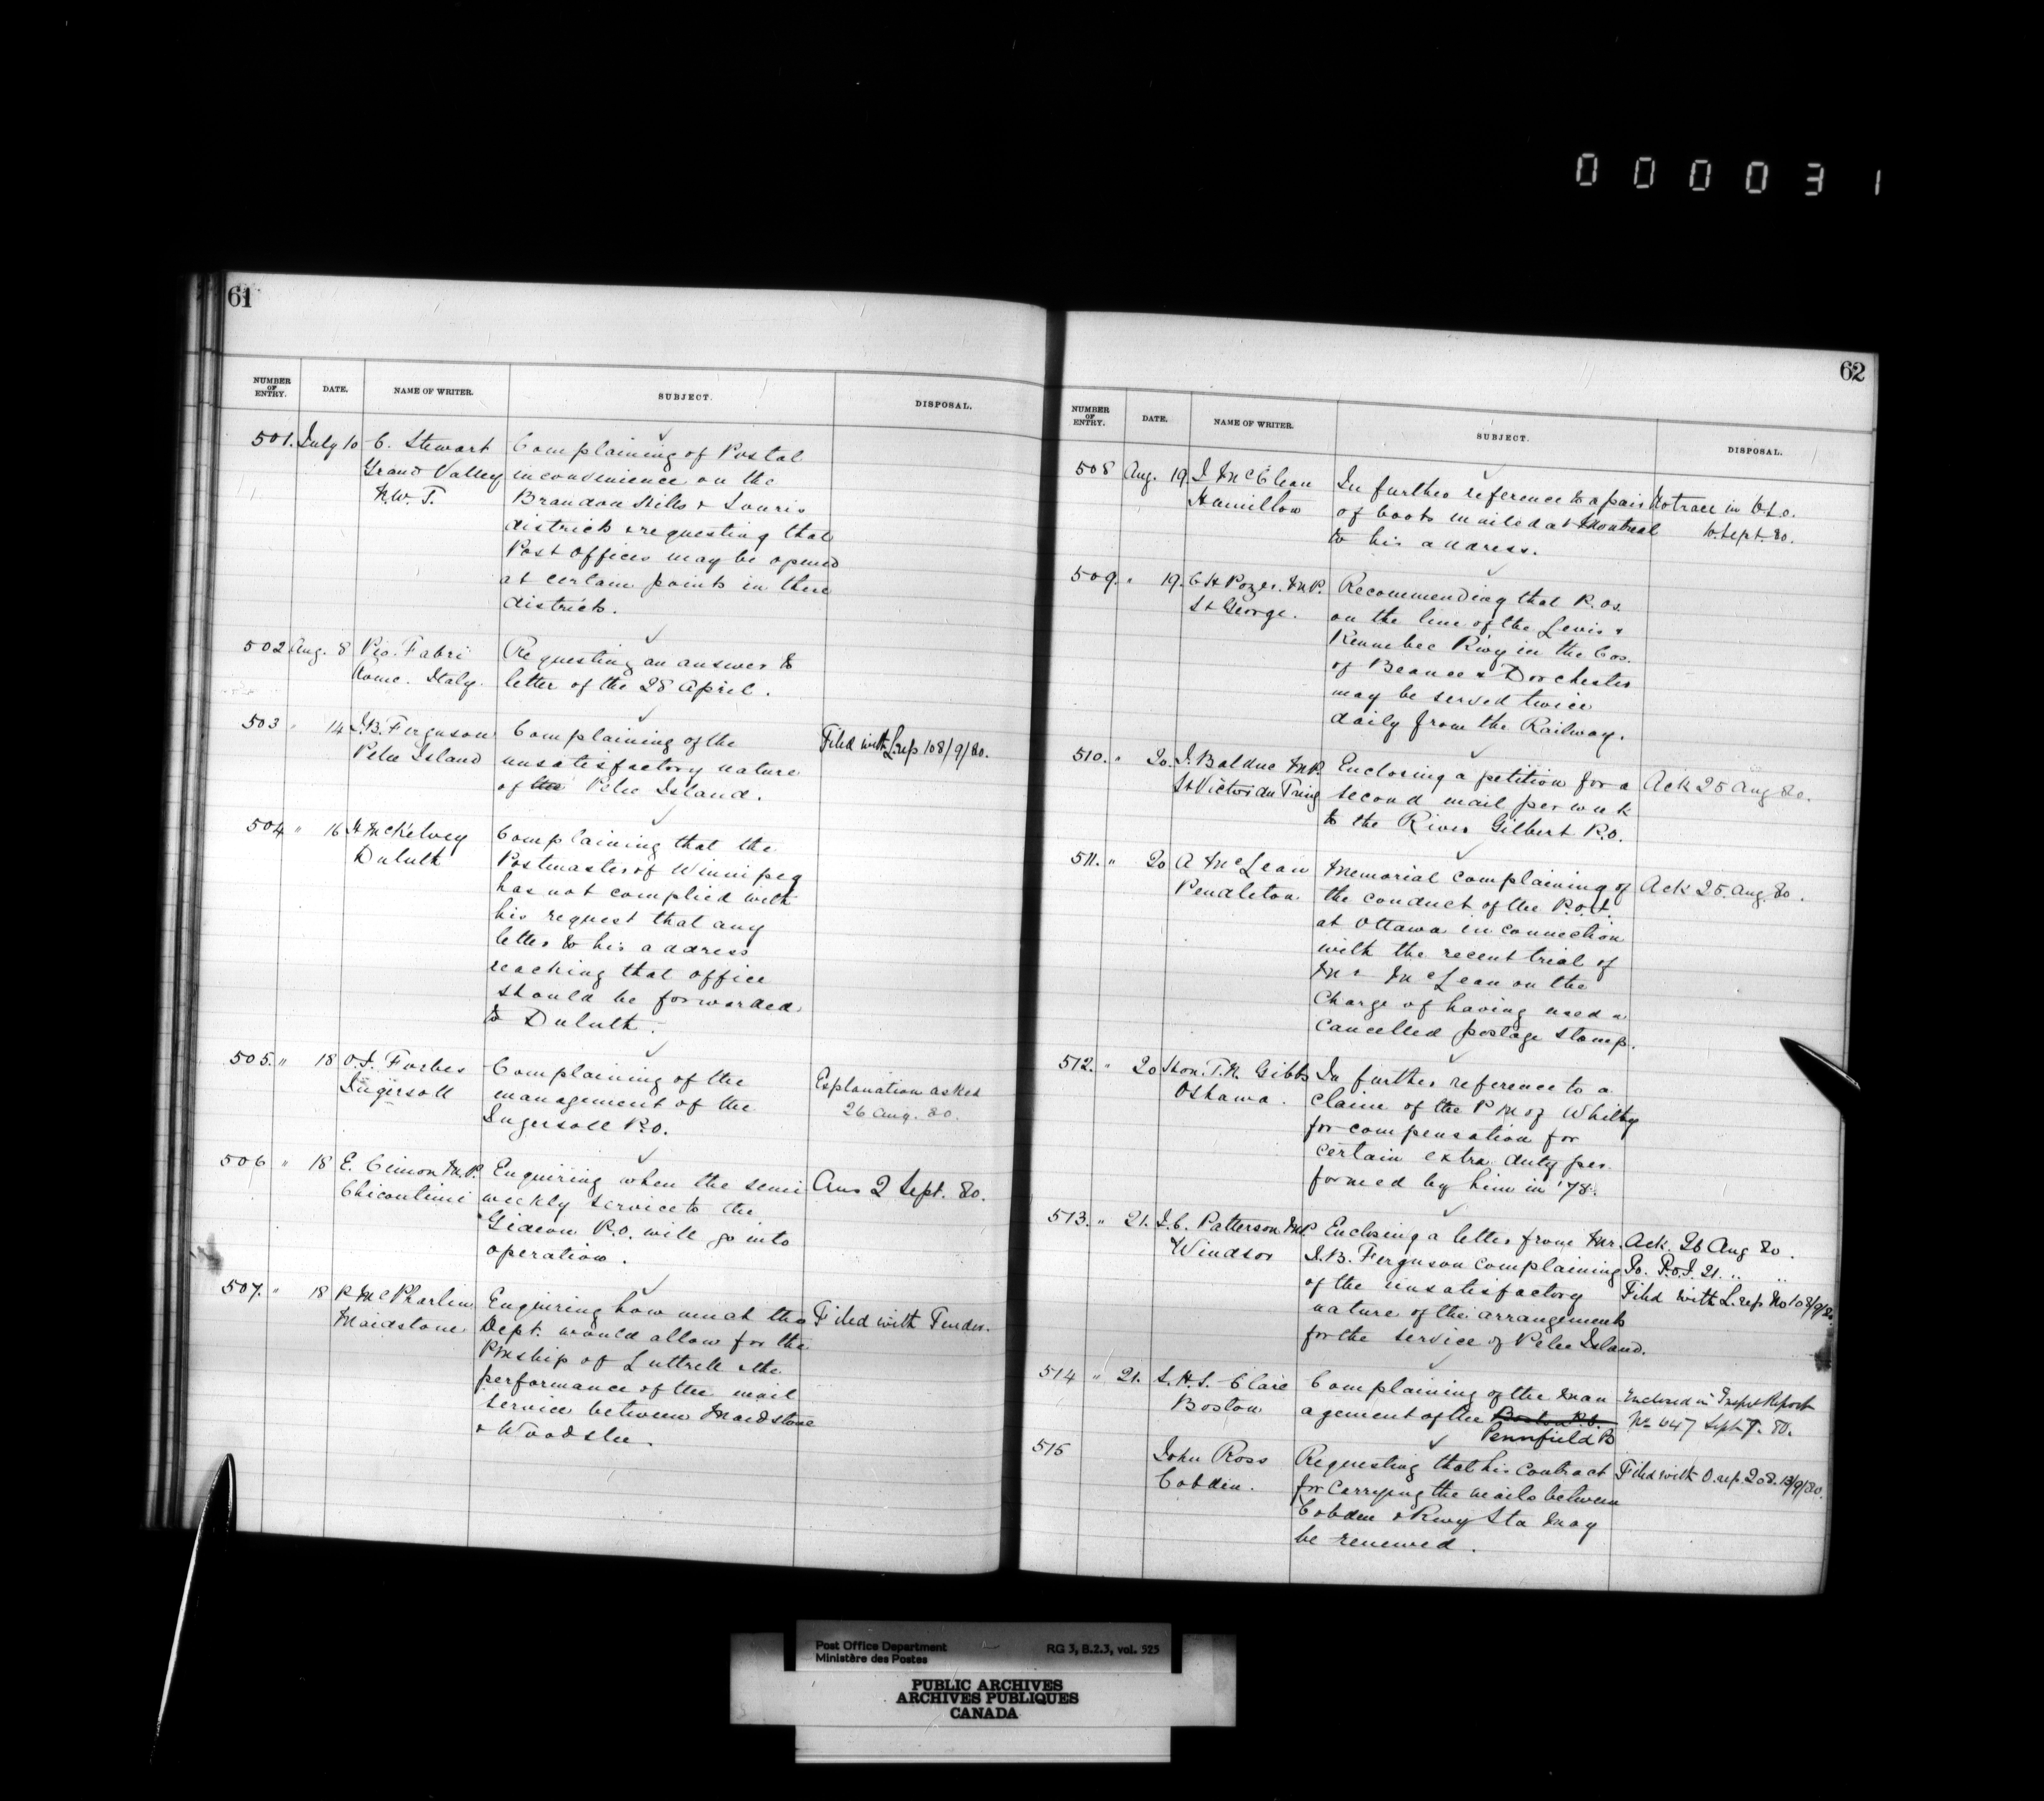 000031
61
NUMBER OF ENTRY. DATE. NAME OF WRITER. SUBJECT. DISPOSAL.
501. July 10 C. Stewart Complaining of Postal
Grand Valley inconvenience on the
N.W.T. Brandon Hills & Souris
districts & requesting that
Post Offices may be opened
at certain points in these
districts.
502 Aug. 8 Pio. Fabri Requesting an answer to
Rome. Italy. letter of the 28 April.
503 " 14 J.B. Ferguson Complaining of the Filed with L.rep 108/9/80.
Pelee Island unsatisfactory nature
of the Pelee Island.
504 " 16 H McKelvey Complaining that the
Duluth Postmaster of Winnipeg
has not complied with
his request that any
letter to his address
reaching that office
should be forwarded
to Duluth.
505. " 18 O.J. Forbes Complaining of the Explanation asked
Ingersoll management of the 26 Aug. 80.
Ingersoll P.O.
506 " 18 E. Cimon M.P. Enquiring when the semi Ans 2 Sept. 80.
Chicoutimi weekly service to the
Gideon P.O. will go into
operation.
507. " 18 P. McPharlin Enquiring how much the Filed with Tender.
Maidstone Dept. would allow for the
PMship of Luttrell & the
performance of the mail
service between Maidstone
& Woodslee.
62
NUMBER OF ENTRY. DATE. NAME OF WRITER. SUBJECT. DISPOSAL.
508 Aug. 19. J McClean In further reference to a pair No trace in D.L.O.
Hamilton of boots mailed at Montreal Sept. 80.
to his address.
509. " 19. C H Pozer. M.P. Recommending that P.Os.
St George. on the line of the Levis &
Kennebec R'wy in the Cos.
of Beauce & Dorchester
may be served twice
daily from the Railway.
510. " 20. J. Bolduc M.P. Enclosing a petition for a Ack 25 Aug. 80.
St Victor du Tring second mail per week
to the River Gilbert P.O.
511. " 20 A McLean Memorial complaining of Ack 25. Aug. 80.
Pendleton the conduct of the P.O.I.
at Ottawa in connection
with the recent trial of
Mr McLean on the
charge of having used a
cancelled postage stamp.
512. " 20 Hon. T.N. Gibbs In further reference to a
Oshawa. claim of the P M of Whitby
for compensation for
certain extra duty per
formed by him in '78.
513. " 21. J.C. Patterson M.P. Enclosing a letter from Mr. Ack. 26 Aug 80.
Windsor J.B. Ferguson complaining To. P.O.I. 21. " "
of the unsatisfactory Filed with L.rep No 108/9/80.
nature of the arrangements
for the service of Pelee Island.
514 " 21. S.H.S. Clare Complaining of the man Enclosed in Inspr's Report
Boston agement of the Boston P.O. No 647 Sept 7. 80.
Pennfield P.O
515 John Ross Requesting that his contract Filed with O.rep. 208. 13/9/80.
Cobden. for carrying the mails between
Cobden & Rwy Sta may
be renewed.
Post Office Department RG 3, B.2.3, vol. 525
Ministère des Postes
PUBLIC ARCHIVES
ARCHIVES PUBLIQUES
CANADA